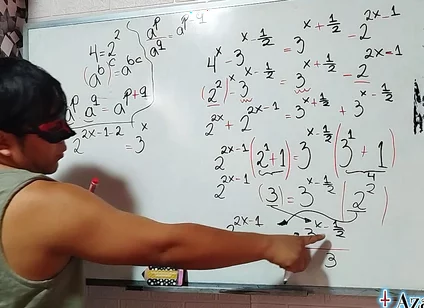 a^p/a^q = a^(p-q)
4 = 2^2
(a^b)^c = a^(bc)
a^p a^q = a^(p+q)
2^(2x-1-2) = 3^x
4^x - 3^(x-1/2) = 3^(x+1/2) - 2^(2x-1)
(2^2)^x - 3^(x-1/2) = 3^(x+1/2) - 2^(2x-1)
2^(2x) + 2^(2x-1) = 3^(x+1/2) + 3^(x-1/2)
2^(2x-1)(2^1+1) = 3^(x-1/2)(3^1+1)
4
(3) = 3^(x-1/2)(2^2)
2^(2x-1) = 3^(x-1/2)
3
+ Aza